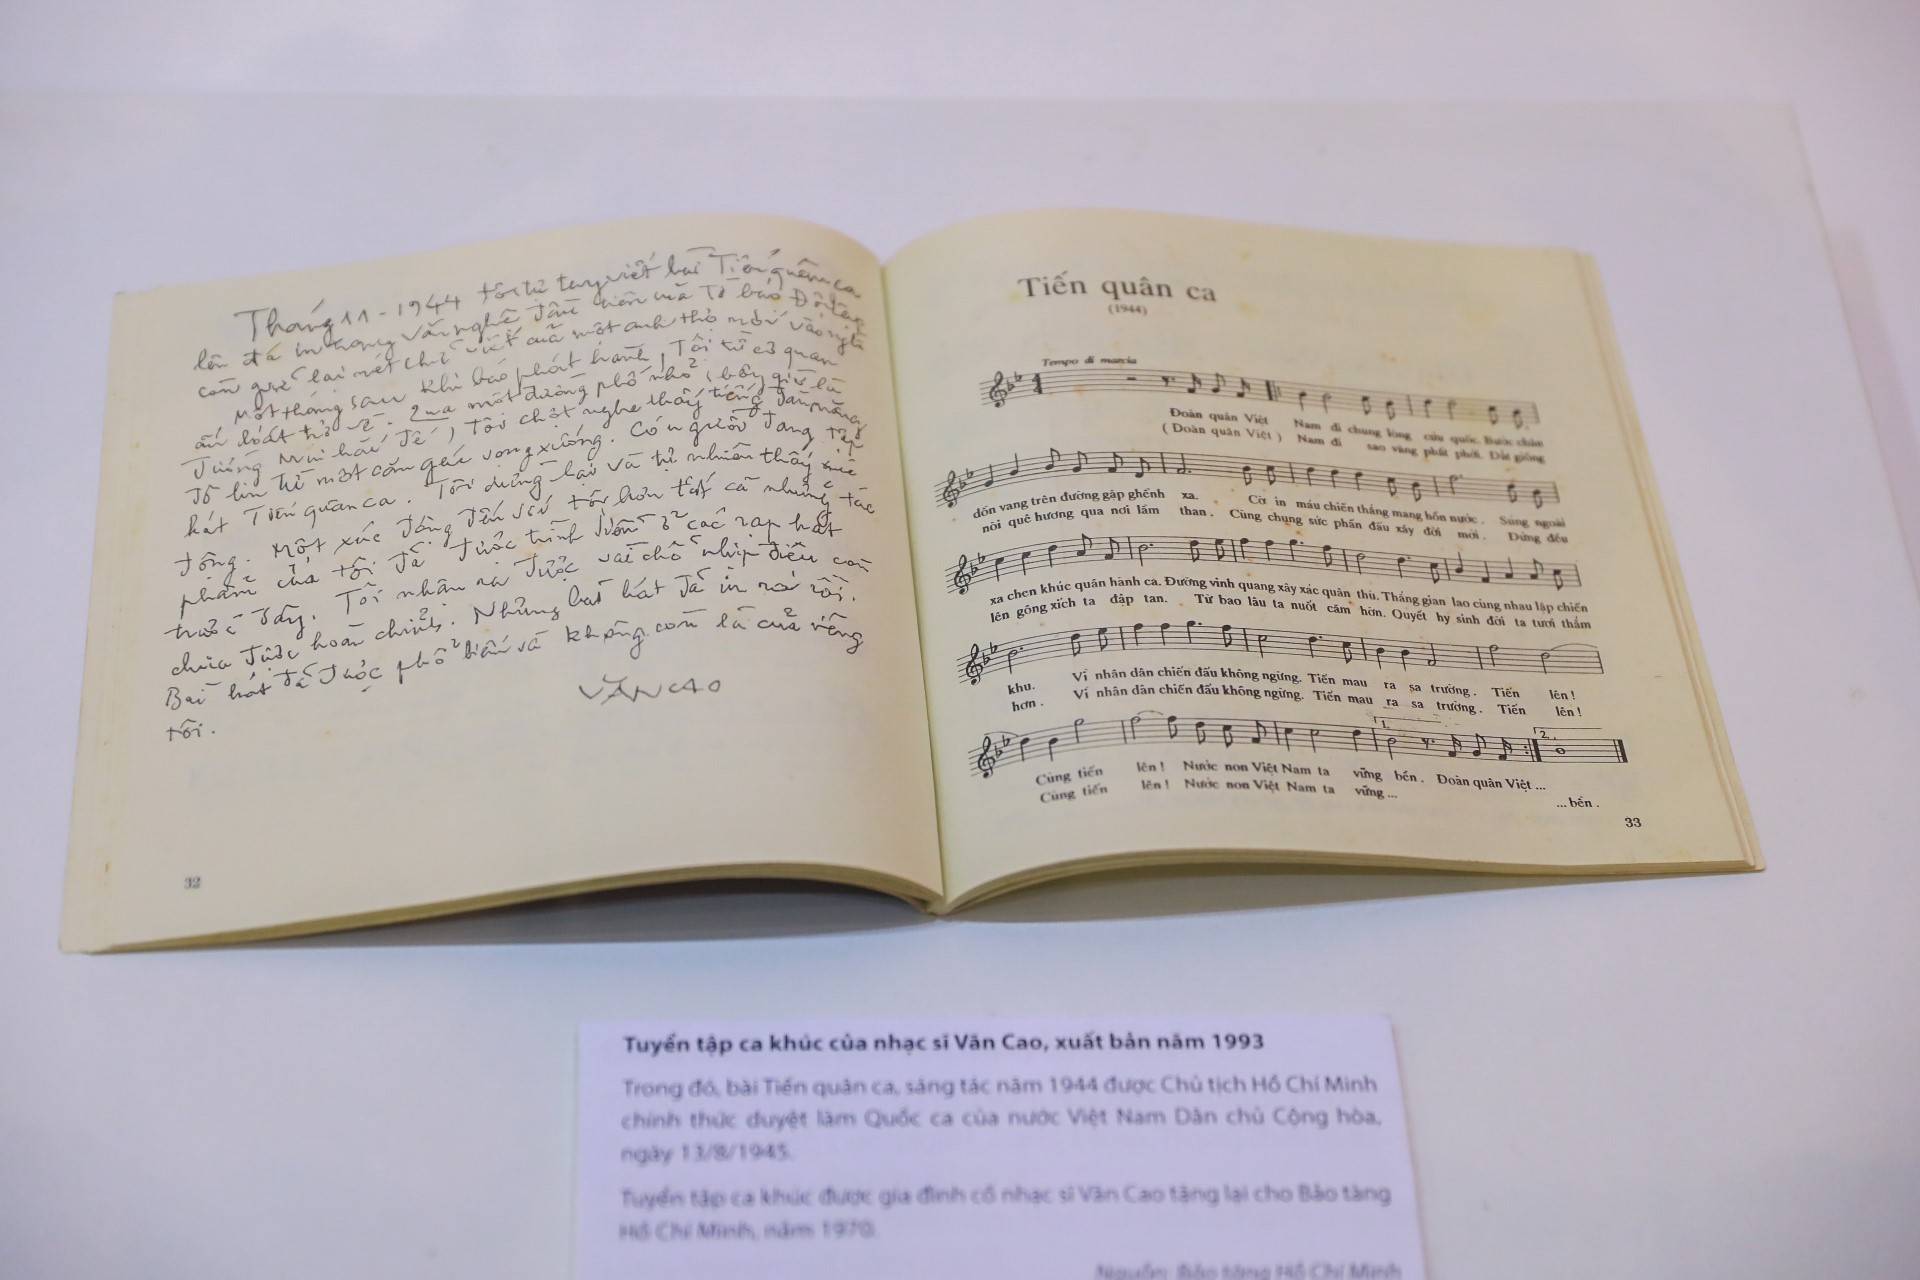 Tháng 11-1944 tôi tự tay viết bài Tiến quân ca
lên đá in trong văn nghệ đầu tiên của tờ báo Độc lập
còn giữ lại nét chữ viết của một anh thợ mới vào nghề
Một tháng sau khi báo phát hành, Tôi từ cơ quan
ấn loát trở về. Qua một đường phố nhỏ, bây giờ là
đường Mai hắc đế, tôi chợt nghe thấy tiếng đàn măng
đô lin từ một căn gác vọng xuống. Có người đang tập
hát Tiến quân ca. Tôi dừng lại và tự nhiên thấy xúc
động. Một xúc động đến với tôi hơn tất cả những tác
phẩm của tôi đã được trình diễn ở các rạp hát
trước đây. Tôi nhận ra được vài chỗ nhịp điệu còn
chưa được hoàn chỉnh. Nhưng bài hát đã in ra rồi.
Bài hát đã được phổ biến và không còn là của riêng
tôi.
VĂN CAO
32
Tiến quân ca
(1944)
Tempo di marcia
Đoàn quân Việt Nam đi chung lòng cứu quốc. Bước chân
( Đoàn quân Việt ) Nam đi sao vàng phất phới. Dắt giống
dồn vang trên đường gập ghềnh xa. Cờ in máu chiến thắng mang hồn nước. Súng ngoài
nòi quê hương qua nơi lầm than. Cùng chung sức phấn đấu xây đời mới. Đứng đều
xa chen khúc quân hành ca. Đường vinh quang xây xác quân thù. Thắng gian lao cùng nhau lập chiến
lên gông xích ta đập tan. Từ bao lâu ta nuốt căm hờn. Quyết hy sinh đời ta tươi thắm
khu. Vì nhân dân chiến đấu không ngừng. Tiến mau ra sa trường. Tiến lên!
hơn. Vì nhân dân chiến đấu không ngừng. Tiến mau ra sa trường. Tiến lên!
1. 2.
Cùng tiến lên! Nước non Việt Nam ta vững bền. Đoàn quân Việt ...
Cùng tiến lên! Nước non Việt Nam ta vững ... ... bền.
33
Tuyển tập ca khúc của nhạc sĩ Văn Cao, xuất bản năm 1993
Trong đó, bài Tiến quân ca, sáng tác năm 1944 được Chủ tịch Hồ Chí Minh
chính thức duyệt làm Quốc ca của nước Việt Nam Dân chủ Cộng hòa,
ngày 13/8/1945.
Tuyển tập ca khúc được gia đình cố nhạc sĩ Văn Cao tặng lại cho Bảo tàng
Hồ Chí Minh, năm 1970.
Nguồn: Bảo tàng Hồ Chí Minh